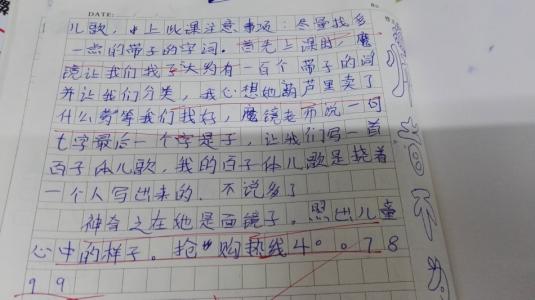 DATE:
儿歌，上此课注意事项：尽量找多
一点的带子的字词。首先上课时，魔
镜让我们找了大约有一百个带子的词
并让我们分类，我心想她葫芦里卖了
什么药等我们找好，魔镜老师说一句
七字最后一个字是子，让我们写一首
百子体儿歌，我的百子体儿歌是挠着
一个人写出来的，不说多了
神奇之在她是面镜子。照出儿童
心中的样子。抢"购热线4008.78
99